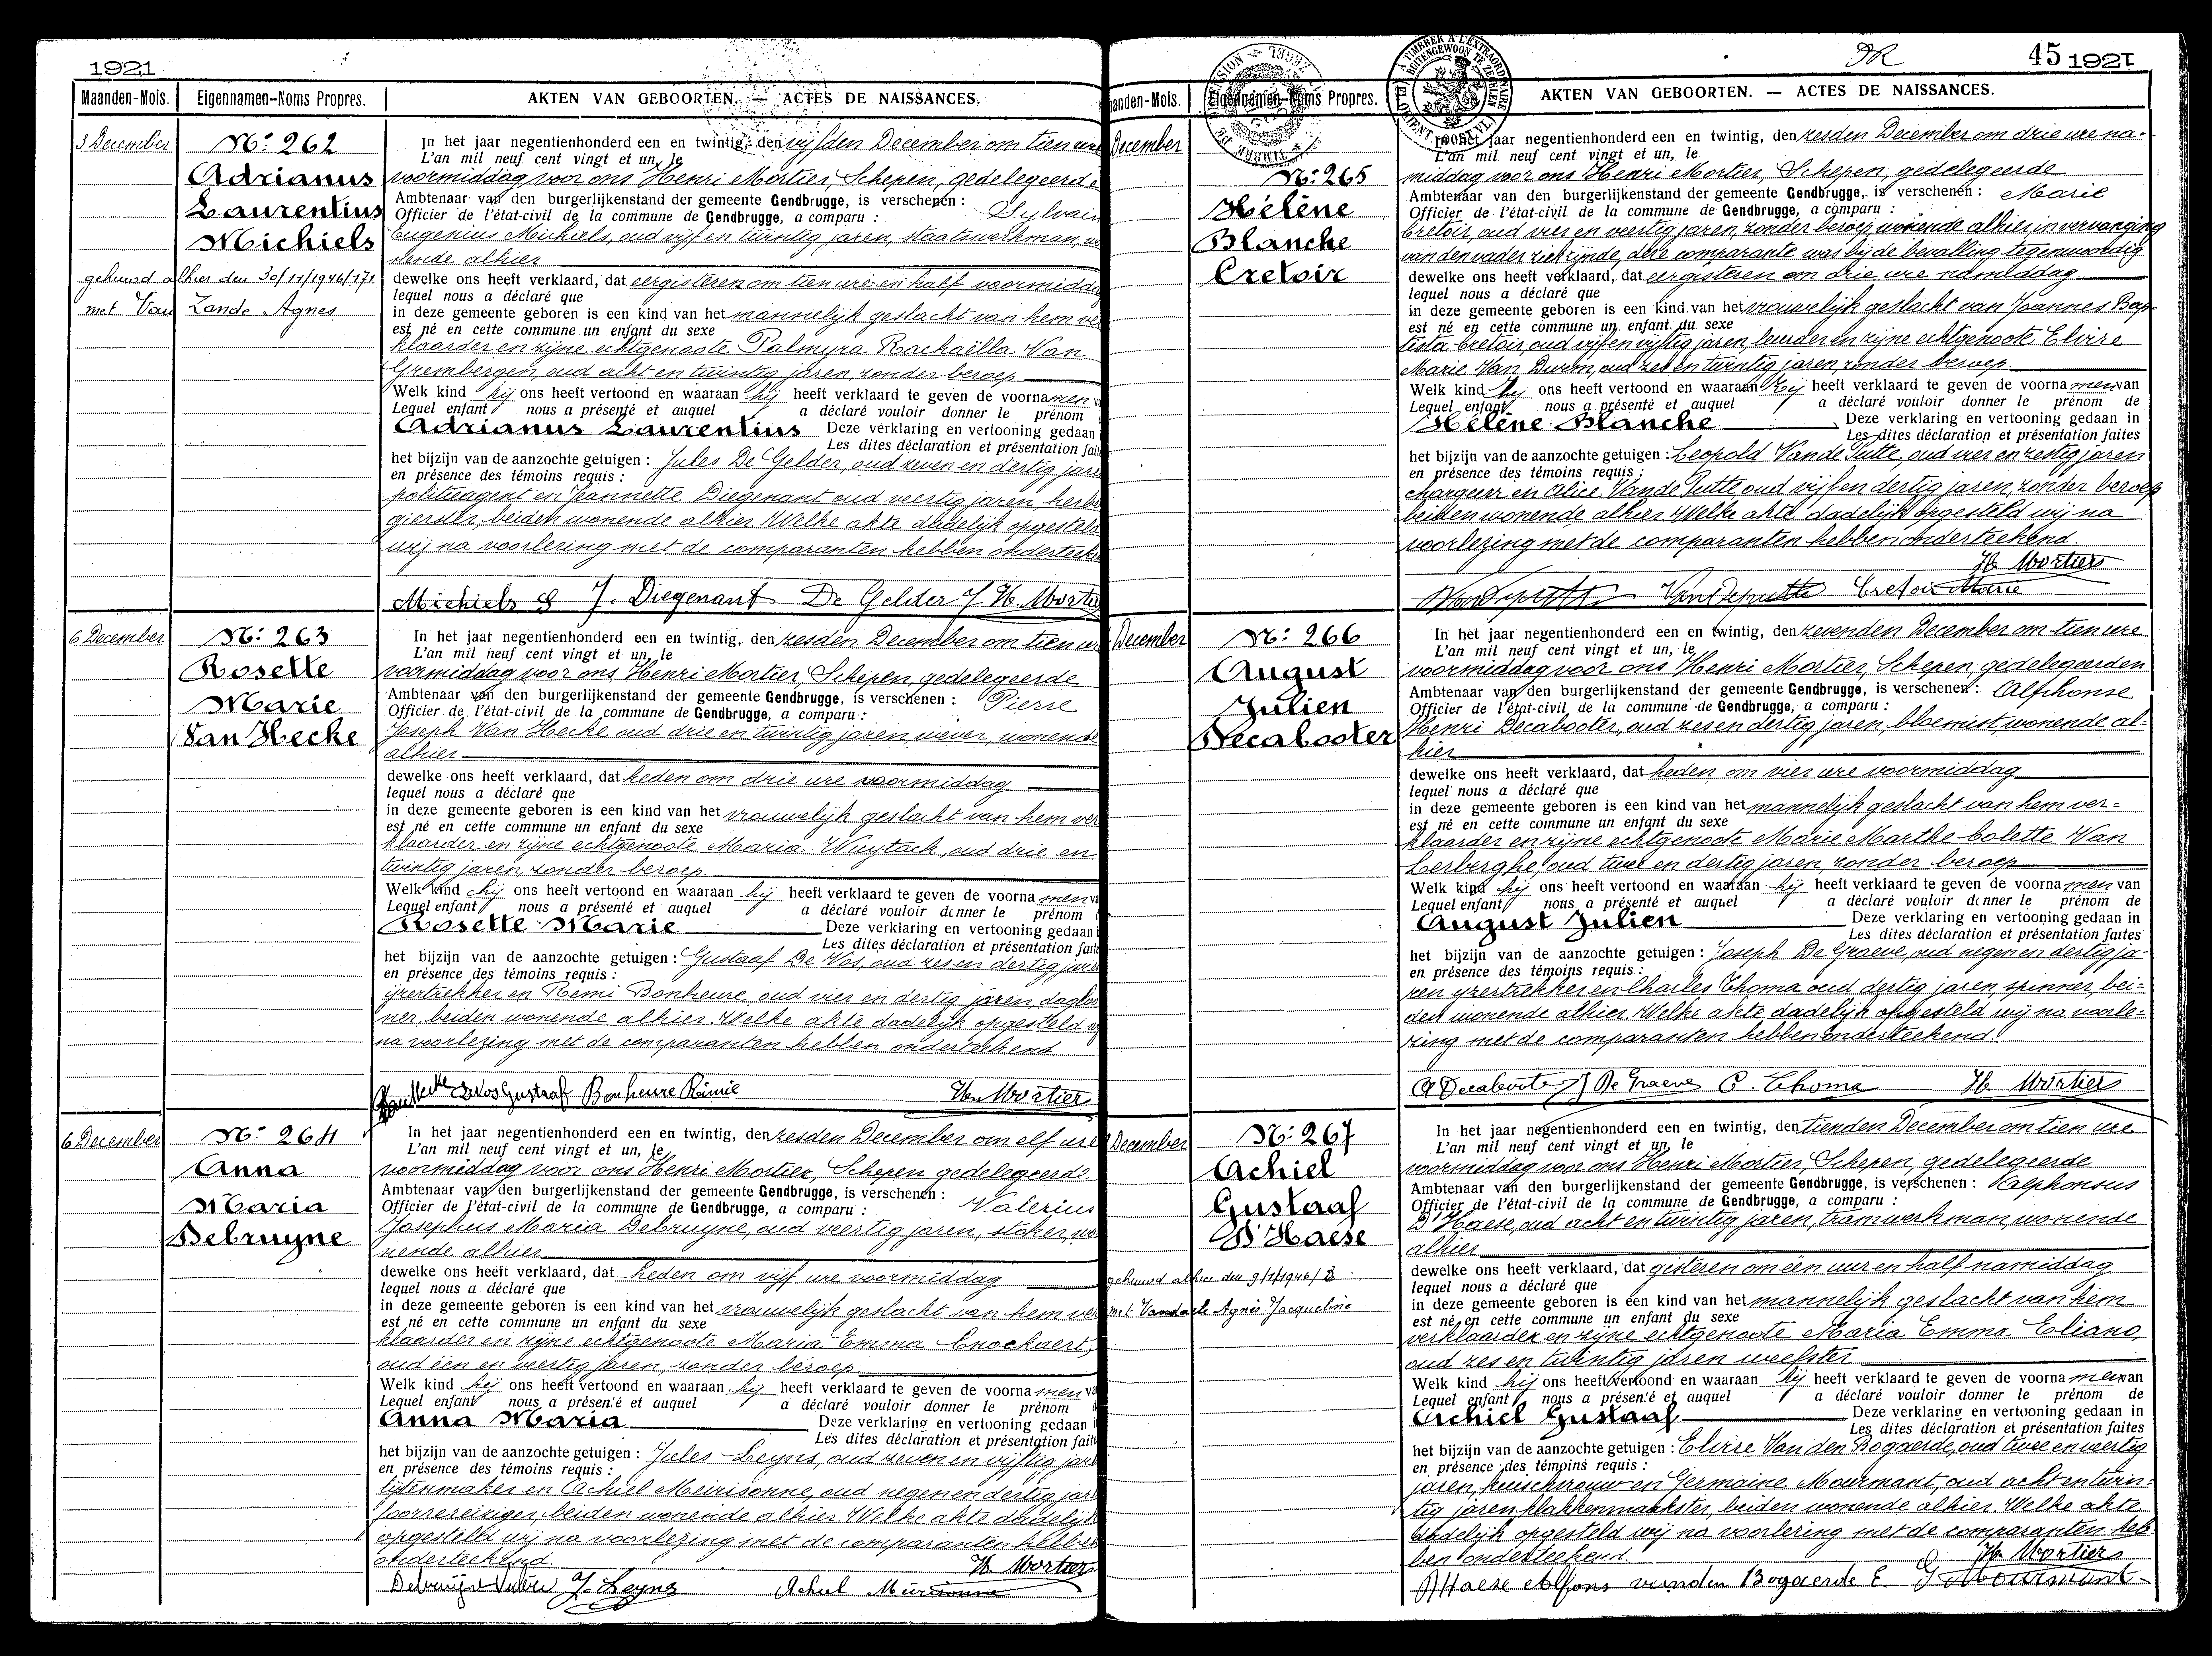 1921
Maanden-Mois. Eigennamen-Noms Propres. AKTEN VAN GEBOORTEN. — ACTES DE NAISSANCES.
3 December
No: 262
Adrianus
Laurentius
Michiels
gehuwd alhier den 30/11/1946/171
met Van Zande Agnes
In het jaar negentienhonderd een en twintig, den vijfden December om tien ure
L'an mil neuf cent vingt et un, le
voormiddag voor ons Henri Mortier, Schepen, gedelegeerde
Ambtenaar van den burgerlijkenstand der gemeente Gendbrugge, is verschenen : Sylvain
Officier de l'état-civil de la commune de Gendbrugge, a comparu :
Eugenius Michiels, oud vijf en twintig jaren, staatswerkman, wo
nende alhier
dewelke ons heeft verklaard, dat eergisteren om tien ure en half voormiddag
lequel nous a déclaré que
in deze gemeente geboren is een kind van het mannelijk geslacht van hem ver
est né en cette commune un enfant du sexe
klaarder en zijne echtgenoote Palmyra Rachaëlla Van
Grembergen, oud acht en twintig jaren, zonder beroep
Welk kind hij ons heeft vertoond en waaraan hij heeft verklaard te geven de voorna men v
Lequel enfant nous a présenté et auquel a déclaré vouloir donner le prénom
Adrianus Laurentius Deze verklaring en vertooning gedaan
Les dites déclaration et présentation fait
het bijzijn van de aanzochte getuigen : Jules De Gelder, oud zeven en dertig jaren
en présence des témoins requis :
politieagent en Jeannette Diegenant oud veertig jaren, herber
gierster, beiden wonende alhier. Welke akte dadelijk opgesteld
wij na voorlezing met de comparanten hebben onderteekend
Michiels S J. Diegenant De Gelder J H. Mortier
6 December
No: 263
Rosette
Marie
Van Hecke
In het jaar negentienhonderd een en twintig, den zesden December om tien ure
L'an mil neuf cent vingt et un, le
voormiddag voor ons Henri Mortier, Schepen, gedelegeerde
Ambtenaar van den burgerlijkenstand der gemeente Gendbrugge, is verschenen : Pierre
Officier de l'état-civil de la commune de Gendbrugge, a comparu :
Joseph Van Hecke oud drie en twintig jaren, wever, wonende
alhier
dewelke ons heeft verklaard, dat heden om drie ure voormiddag
lequel nous a déclaré que
in deze gemeente geboren is een kind van het vrouwelijk geslacht van hem ver
est né en cette commune un enfant du sexe
klaarder en zijne echtgenoote Maria Wuytack, oud drie en
twintig jaren, zonder beroep
Welk kind hij ons heeft vertoond en waaraan hij heeft verklaard te geven de voorna men va
Lequel enfant nous a présenté et auquel a déclaré vouloir donner le prénom
Rosette Marie Deze verklaring en vertooning gedaan i
Les dites déclaration et présentation faite
het bijzijn van de aanzochte getuigen : Gustaaf De Vos, oud zes en dertig jaren
en présence des témoins requis :
ijzertrekker en Remi Bonheure, oud vier en dertig jaren, dagloo
ner, beiden wonende alhier. Welke akte dadelijk opgesteld wij
na voorlezing met de comparanten hebben onderteekend
Van Hecke De Vos Gustaaf Bonheure Rémie H. Mortier
6 December
No: 264
Anna
Maria
Debruyne
In het jaar negentienhonderd een en twintig, den zesden December om elf ure
L'an mil neuf cent vingt et un, le
voormiddag voor ons Henri Mortier, Schepen gedelegeerde
Ambtenaar van den burgerlijkenstand der gemeente Gendbrugge, is verschenen : Valerius
Officier de l'état-civil de la commune de Gendbrugge, a comparu :
Josephus Maria Debruyne, oud veertig jaren, stoker, wo
nende alhier
dewelke ons heeft verklaard, dat heden om vijf ure voormiddag
lequel nous a déclaré que
in deze gemeente geboren is een kind van het vrouwelijk geslacht van hem ver
est né en cette commune un enfant du sexe
klaarder en zijne echtgenoote Maria Emma Cnockaert,
oud één en veertig jaren, zonder beroep
Welk kind hij ons heeft vertoond en waaraan hij heeft verklaard te geven de voorna men va
Lequel enfant nous a présenté et auquel a déclaré vouloir donner le prénom
Anna Maria Deze verklaring en vertooning gedaan i
Les dites déclaration et présentation faite
het bijzijn van de aanzochte getuigen : Jules Leyns, oud zeven en vijftig jaren
en présence des témoins requis :
lijstenmaker en Achiel Meirisonne, oud negen en dertig jaren
foorreiziger, beiden wonende alhier. Welke akte dadelijk
opgesteld wij na voorlezing met de comparanten hebben
onderteekend. H. Mortier
Debruyne Valère J. Leyns Achiel Meirisonne
45 1921
Maanden-Mois. Eigennamen-Noms Propres. AKTEN VAN GEBOORTEN. — ACTES DE NAISSANCES.
December
No: 265
Hélène
Blanche
Cretoir
In het jaar negentienhonderd een en twintig, den zesden December om drie ure na-
L'an mil neuf cent vingt et un, le
middag voor ons Henri Mortier, Schepen, gedelegeerde
Ambtenaar van den burgerlijkenstand der gemeente Gendbrugge, is verschenen : Marie
Officier de l'état-civil de la commune de Gendbrugge, a comparu :
Cretoir, oud vier en veertig jaren, zonder beroep, wonende alhier, in vervanging
van den vader ziek zijnde, deze comparante was bij de bevalling tegenwoordig
dewelke ons heeft verklaard, dat eergisteren om drie ure namiddag
lequel nous a déclaré que
in deze gemeente geboren is een kind van het vrouwelijk geslacht van Joannes Bap-
est né en cette commune un enfant du sexe
tista Cretoir, oud vijf en vijftig jaren, leurder en zijne echtgenoote Elvire
Marie Van Durm, oud zes en twintig jaren, zonder beroep
Welk kind zij ons heeft vertoond en waaraan zij heeft verklaard te geven de voorna men van
Lequel enfant nous a présenté et auquel a déclaré vouloir donner le prénom de
Hélène Blanche Deze verklaring en vertooning gedaan in
Les dites déclaration et présentation faites
het bijzijn van de aanzochte getuigen : Leopold Vande Putte, oud vier en zestig jaren
en présence des témoins requis :
chargeur en Alice Vande Putte oud vijf en dertig jaren, zonder beroep
beiden wonende alhier. Welke akte dadelijk opgesteld wij na
voorlezing met de comparanten hebben onderteekend.
H. Mortier
Vandeputte Vandeputte Cretoir Marie
December
No: 266
August
Julien
Decabooter
In het jaar negentienhonderd een en twintig, den zevenden December om tien ure
L'an mil neuf cent vingt et un, le
voormiddag voor ons Henri Mortier, Schepen, gedelegeerden
Ambtenaar van den burgerlijkenstand der gemeente Gendbrugge, is verschenen : Alphonse
Officier de l'état-civil de la commune de Gendbrugge, a comparu :
Henri Decabooter, oud zes en dertig jaren, bloemist, wonende al-
hier
dewelke ons heeft verklaard, dat heden om vier ure voormiddag
lequel nous a déclaré que
in deze gemeente geboren is een kind van het mannelijk geslacht van hem ver=
est né en cette commune un enfant du sexe
klaarder en zijne echtgenoote Marie Marthe Colette Van
Lerberghe, oud twee en dertig jaren, zonder beroep
Welk kind hij ons heeft vertoond en waaraan hij heeft verklaard te geven de voorna men van
Lequel enfant nous a présenté et auquel a déclaré vouloir donner le prénom de
August Julien Deze verklaring en vertooning gedaan in
Les dites déclaration et présentation faites
het bijzijn van de aanzochte getuigen : Joseph De Graeve, oud negen en dertig ja-
en présence des témoins requis :
ren ijzertrekker en Charles Thoma oud dertig jaren, spinner, bei=
den wonende alhier. Welke akte dadelijk opgesteld wij na voorle=
zing met de comparanten hebben onderteekend.
A Decabooter J De Graeve C. Thoma H. Mortier
December
No: 267
Achiel
Gustaaf
D'Haese
gehuwd alhier den 9/1/1946/3
met Vandaele Agnès Jacqueline
In het jaar negentienhonderd een en twintig, den tienden December om tien ure
L'an mil neuf cent vingt et un, le
voormiddag voor ons Henri Mortier, Schepen, gedelegeerde
Ambtenaar van den burgerlijkenstand der gemeente Gendbrugge, is verschenen : Alphonsus
Officier de l'état-civil de la commune de Gendbrugge, a comparu :
D'Haese, oud acht en twintig jaren, tramwerkman, wonende
alhier
dewelke ons heeft verklaard, dat gisteren om één uur en half namiddag
lequel nous a déclaré que
in deze gemeente geboren is een kind van het mannelijk geslacht van hem
est né en cette commune un enfant du sexe
verklaarder en zijne echtgenoote Maria Emma Eliano,
oud zes en twintig jaren weefster
Welk kind hij ons heeft vertoond en waaraan hij heeft verklaard te geven de voorna men van
Lequel enfant nous a présenté et auquel a déclaré vouloir donner le prénom de
Achiel Gustaaf Deze verklaring en vertooning gedaan in
Les dites déclaration et présentation faites
het bijzijn van de aanzochte getuigen : Elvire Van den Bogaerde, oud twee en veertig
en présence des témoins requis :
jaren, huisvrouw en Germaine Mourmant, oud acht en twin-
tig jaren, vlakkenmaakster, beiden wonende alhier. Welke akte
dadelijk opgesteld wij na voorlezing met de comparanten heb
ben onderteekend. H. Mortier
D'Haese Alfons van den Bogaerde E. G Mourmant